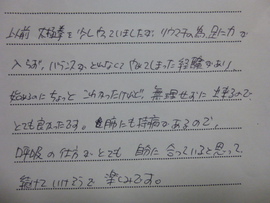 以前 太極拳を少しやっていましたが、リウマチの為、足に力が
入らず、バランスがとれなくてやめてしまった経験があり、
始めるのにちょっと こわかったけど、無理せずに 出来るので
とても良かったです。 肺にも持病があるので、
呼吸の仕方がとても 自分に合っていると思って、
続けていけそうで 楽しみです。